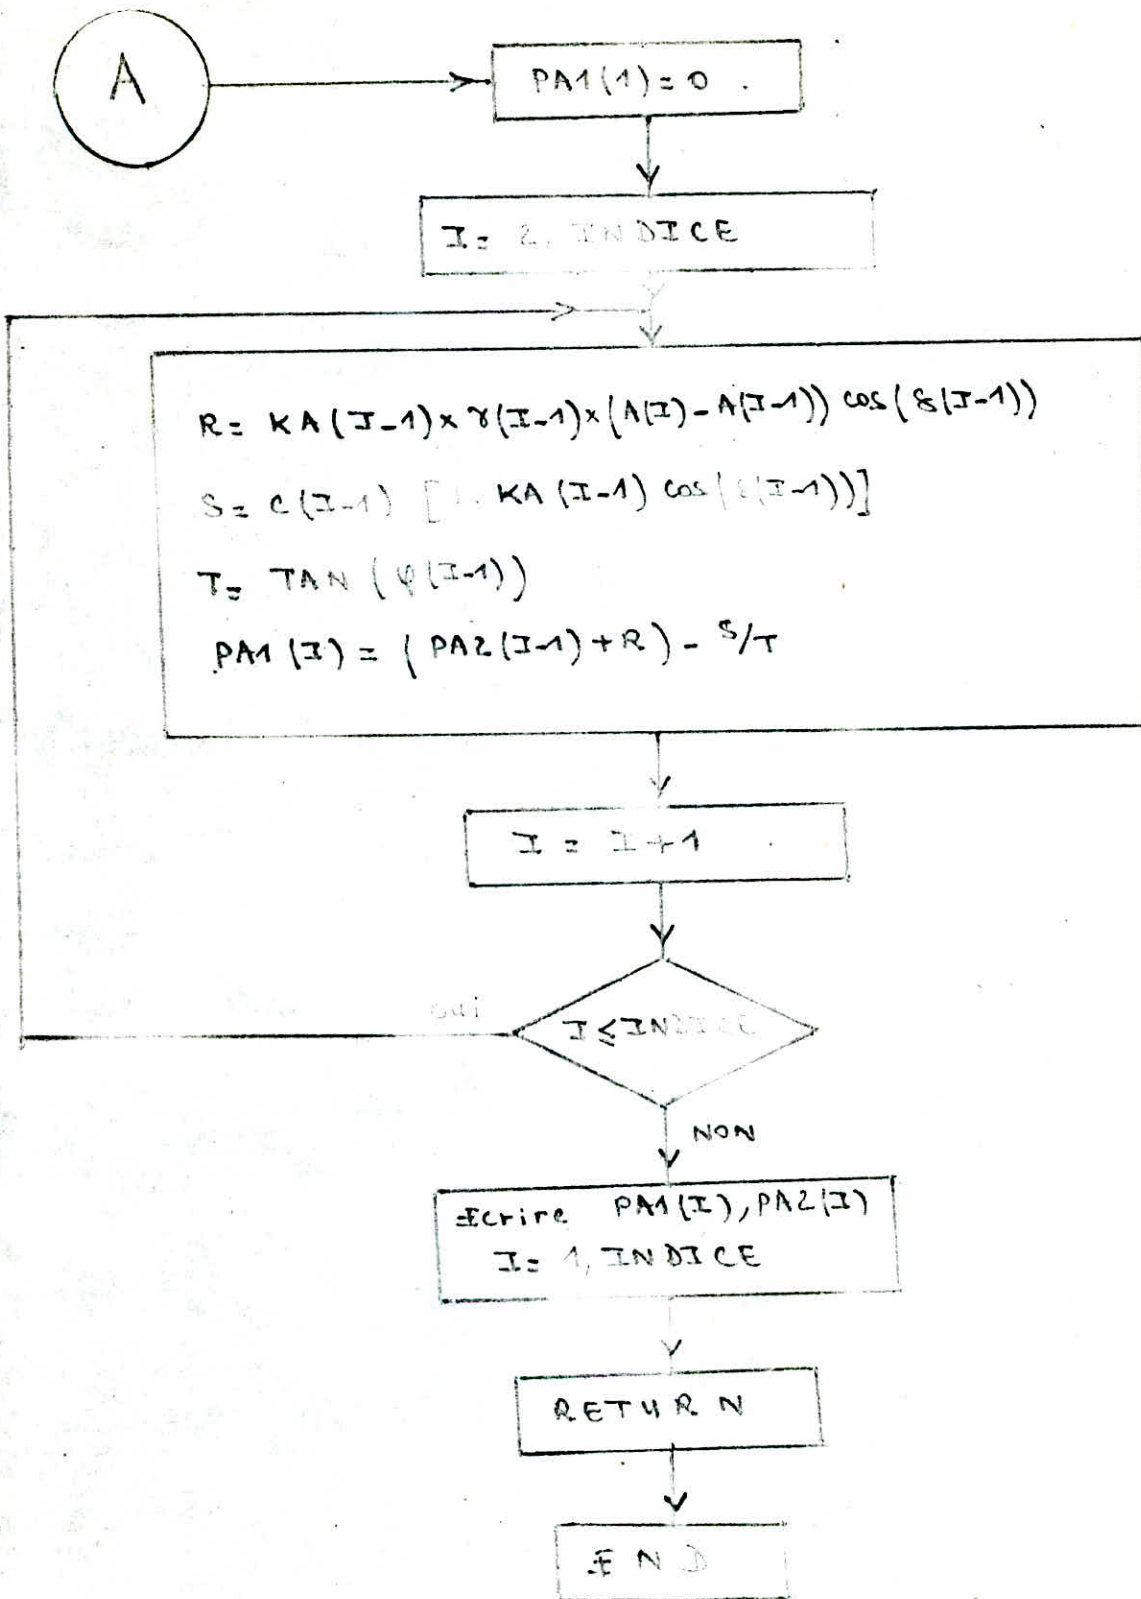 A
PA1(1)=0.
I= 2, INDICE
R= KA(I-1)x γ(I-1)x(A(I)-A(I-1)) cos(δ(I-1))
S= C(I-1) [ KA(I-1) cos(δ(I-1))]
T= TAN (φ(I-1))
PA1(I) = (PA2(I-1)+R) - S/T
I = I+1
oui
I≤INDICE
NON
Ecrire PA1(I), PA2(I)
I= 1, INDICE
RETURN
END